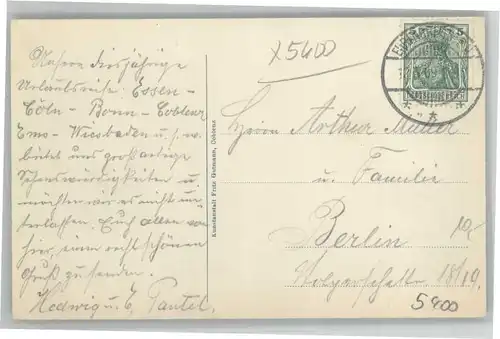 x 5400
Unsere diesjährige
Urlaubsreise: Essen-
Cöln - Bonn - Coblenz
Ems - Wiesbaden u. s. w.
bietet uns großartige
Sehenswürdigkeiten u.
möchten wir es nicht un-
terlassen, Euch allen von
hier, einen recht schönen
Gruß zu senden.
Hedwig u. E. Pantel.
Kunstanstalt Fritz Gutmann, Coblenz
Herrn Arthur Müller
u. Familie
Berlin
18/19.
10,-
5400